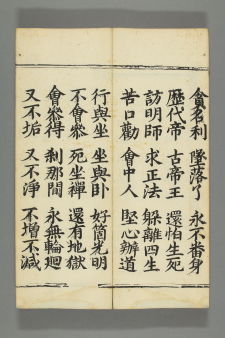 貪名利　墜落了　永不番身
歷代帝　古帝王　還怕生死
訪明師　求正法　躲離四生
苦口勸　會中人　堅心辦道
行與坐　坐與臥　好箇光明
不會叅　死坐禪　還有地獄
會叅得　剎那間　永無輪迴
又不垢　又不淨　不增不減